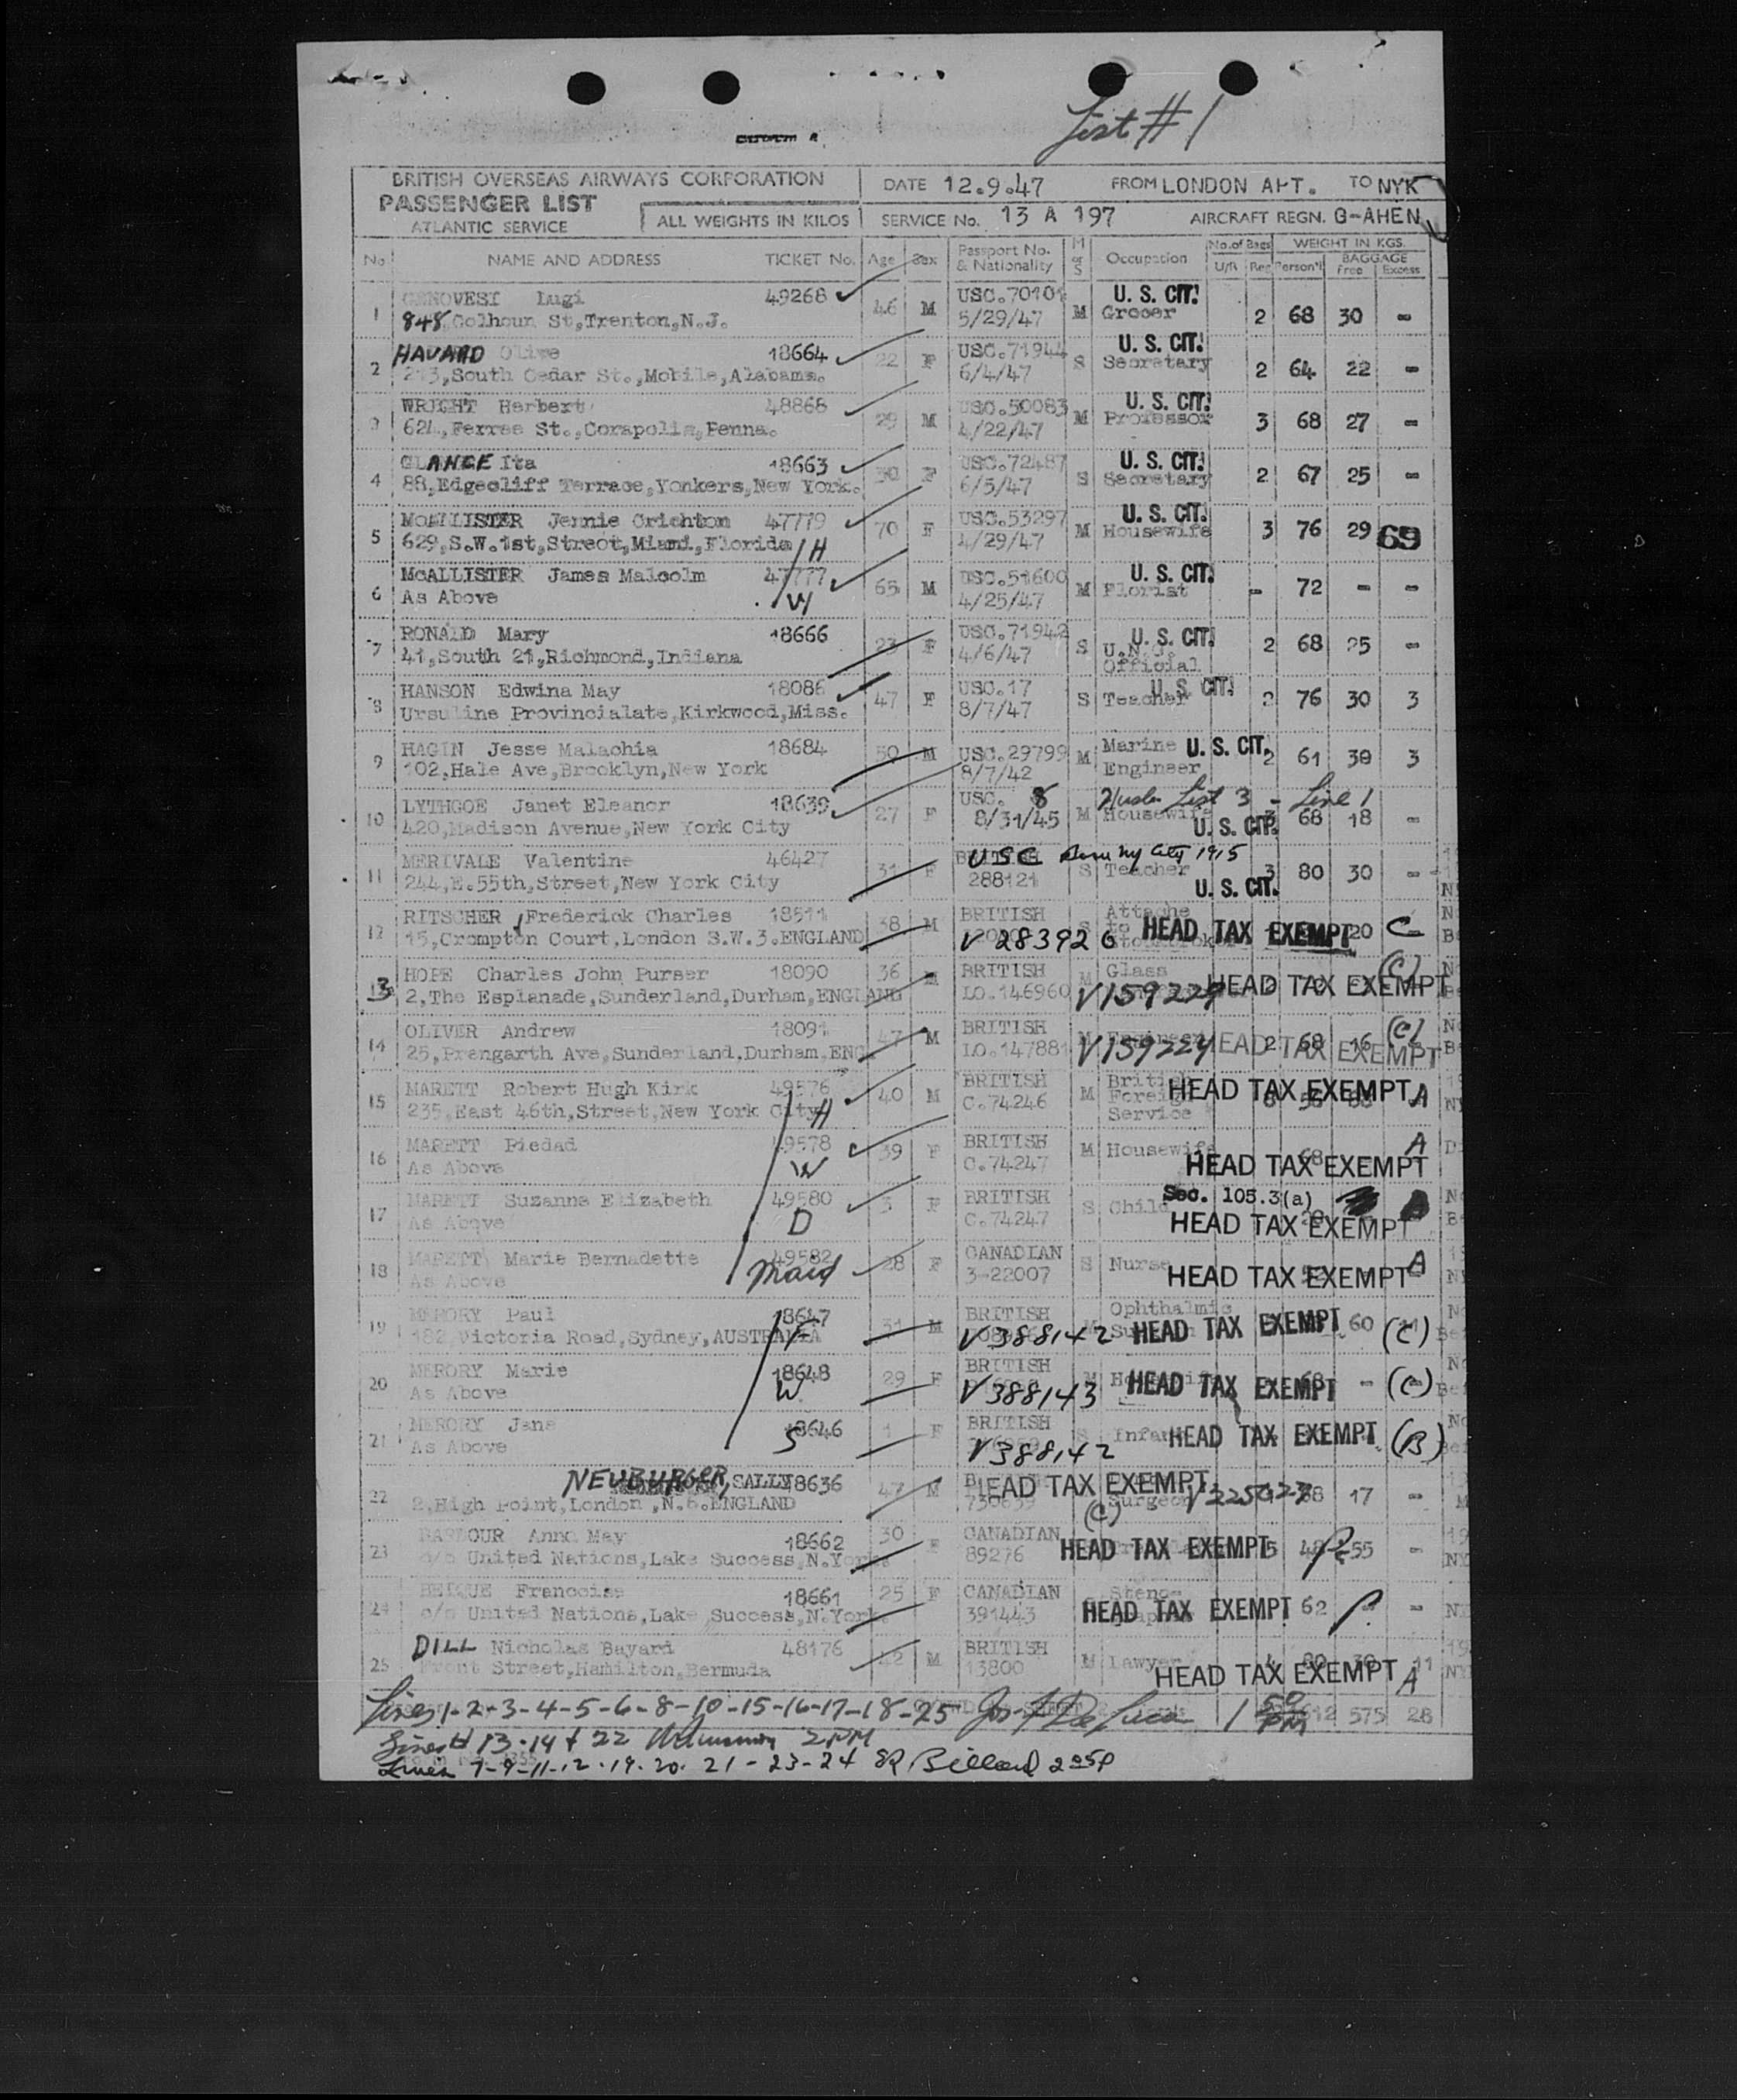 List # 1
BRITISH OVERSEAS AIRWAYS CORPORATION
PASSENGER LIST
ATLANTIC SERVICE
ALL WEIGHTS IN KILOS
DATE 12.9.47 FROM LONDON APT. TO NYK
SERVICE No. 13 A 197 AIRCRAFT REGN. G-AHEN
No. NAME AND ADDRESS TICKET No. Age Sex Passport No. & Nationality M or S Occupation No. of Bags U/R Reg WEIGHT IN KGS. Person'l BAGGAGE Free Excess
1 GENOVESI Lugi 49268 46 M USC.70101 M U. S. CIT. Grocer 2 68 30 -
848, Colhoun St,Trenton,N.J. 5/29/47
2 HAVARD Olive 18664 22 F USC.71944 S U. S. CIT. Secretary 2 64 22 -
213,South Cedar St.,Mobile,Alabama. 6/4/47
3 WRIGHT Herbert 48868 29 M USC.50083 M U. S. CIT. Professor 3 68 27 -
624,Ferree St.,Corapolis,Penna. 4/22/47
4 GLANCE Ita 18663 30 F USC.72487 S U. S. CIT. Secretary 2 67 25 -
88,Edgecliff Terrace,Yonkers,New York. 6/5/47
5 McALLISTER Jennie Crichton 47779 70 F USC.53297 M U. S. CIT. Housewife 3 76 29 69
629,S.W.1st,Street,Miami,Florida H 4/29/47
6 McALLISTER James Malcolm 47777 65 M USC.51600 M U. S. CIT. Florist - 72 - -
As Above W 4/25/47
7 RONALD Mary 18666 23 F USC.71942 S U. S. CIT. U.N.O. Official 2 68 25 -
41,South 21,Richmond,Indiana 4/6/47
8 HANSON Edwina May 18086 47 F USC.17 S U. S. CIT. Teacher 2 76 30 3
Ursuline Provincialate,Kirkwood,Miss. 8/7/47
9 HAGIN Jesse Malachia 18684 50 M USC.29799 M Marine Engineer U. S. CIT. 2 61 30 3
102,Hale Ave,Brooklyn,New York 8/7/42
10 LYTHGOE Janet Eleanor 18639 27 F USC. 8 M Housewife List 3 - Line 1 U. S. CIT. 68 18 -
420,Madison Avenue,New York City 8/31/45
11 MERIVALE Valentine 46427 31 F BRITISH USC Born NY City 1915 S Teacher U. S. CIT. 3 80 30 -
244,E.55th,Street,New York City 288121
12 RITSCHER Frederick Charles 18511 38 M BRITISH S Attache to HEAD TAX EXEMPT 20 C
15,Crompton Court,London S.W.3.ENGLAND V 283926
13 HOPE Charles John Purser 18090 36 M BRITISH M Glass HEAD TAX EXEMPT (C)
2,The Esplanade,Sunderland,Durham,ENGLAND LO.146960 V159227
14 OLIVER Andrew 18091 47 M BRITISH M Engineer HEAD TAX EXEMPT 2 68 16 (C)
25,Prengarth Ave,Sunderland.Durham,ENG. LO.147881 V159224
15 MARETT Robert Hugh Kirk 49576 40 M BRITISH M British Foreign Service HEAD TAX EXEMPT A
235,East 46th,Street,New York City H C.74246
16 MARETT Piedad 49578 39 F BRITISH M Housewife 68 HEAD TAX EXEMPT A
As Above W C.74247
17 MARETT Suzanna Elizabeth 49580 3 F BRITISH S Child Sec. 105.3(a) HEAD TAX EXEMPT
As Above D C.74247
18 MARETT Marie Bernadette 49582 28 F CANADIAN S Nurse HEAD TAX EXEMPT A
As Above Maid 3-22007
19 MERORY Paul 18647 31 M BRITISH Ophthalmic HEAD TAX EXEMPT 60 (C)
182,Victoria Road,Sydney,AUSTRALIA F V388142
20 MERORY Marie 18648 29 F BRITISH M Housewife HEAD TAX EXEMPT 68 - (C)
As Above W V388143
21 MERORY Jane 18646 1 F BRITISH S Infant HEAD TAX EXEMPT (B)
As Above S V388142
22 NEUBURGER, SALLY 18636 47 M HEAD TAX EXEMPT Surgeon V225023 17 -
2,High Point,London,N.6.ENGLAND 730639 (C)
23 BARBOUR Anne May 18662 30 F CANADIAN HEAD TAX EXEMPT 5 48 55 -
c/o United Nations,Lake Success,N.York. 89276
24 BEIQUE Francoise 18661 25 F CANADIAN Steno- HEAD TAX EXEMPT 62 - -
c/o United Nations,Lake Success,N.York 391443
25 DILL Nicholas Bayard 48176 42 M BRITISH M Lawyer HEAD TAX EXEMPT 80 30 11 A
Front Street,Hamilton,Bermuda 13800
Lines 1-2-3-4-5-6-8-10-15-16-17-18-25 Jos. F. De Luca 1 50 PM 575 28
Lines # 13-14 + 22 2 PM
Lines 7-9-11-12-19-20-21-23-24 Billard 2 05P